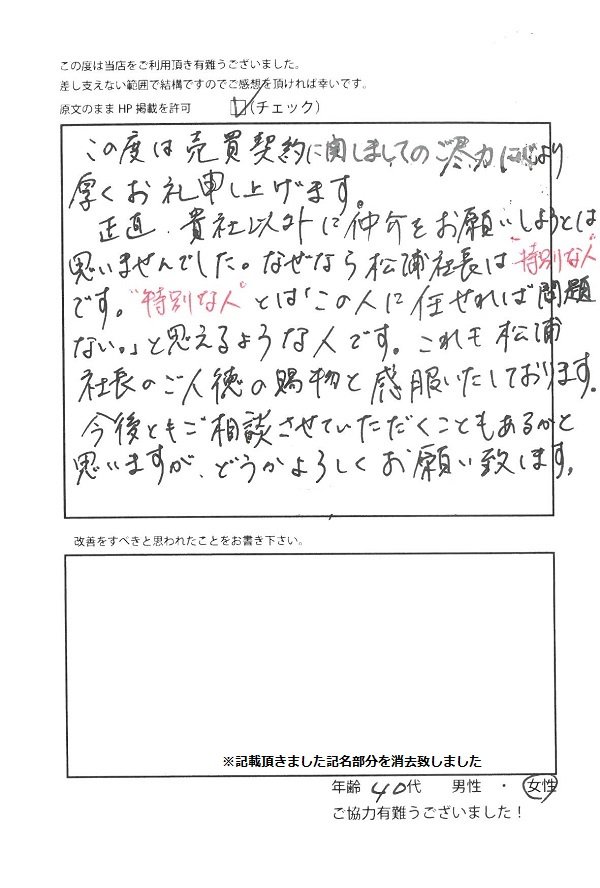 この度は当店をご利用頂き有難うございました。
差し支えない範囲で結構ですのでご感想を頂ければ幸いです。
原文のまま HP 掲載を許可 (チェック)
この度は売買契約に関しましてのご尽力に心より
厚くお礼申し上げます。
正直、貴社以外に仲介をお願いしようとは
思いませんでした。なぜなら松浦社長は"特別な人"
です。"特別な人"とは「この人に任せれば問題
ない。」と思えるような人です。これも松浦
社長のご人徳の賜物と感服いたしております。
今後ともご相談させていただくこともあるかと
思いますが、どうかよろしくお願い致します。
改善をすべきと思われたことをお書き下さい。
※記載頂きました記名部分を消去致しました
年齢 40代 男性 ・ 女性
ご協力有難うございました！